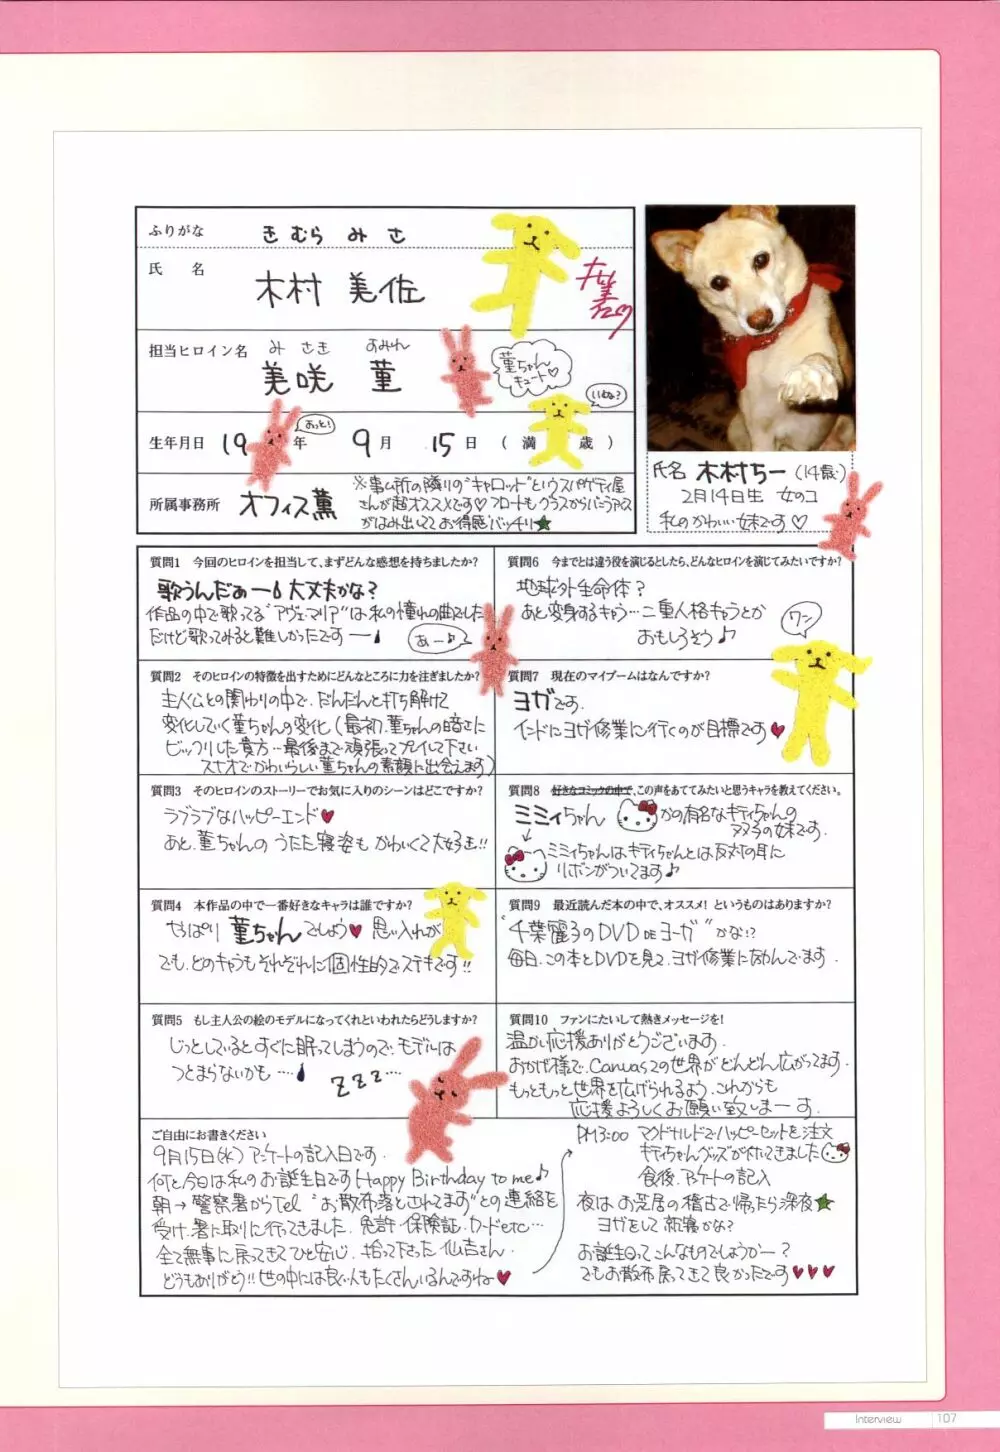 ふりがな きむら みさ
氏 名 木村 美佐
担当ヒロイン名 みさき すみれ
美咲 菫
菫ちゃん
キュート♡
いぬな?
おっと!
生年月日 19 年 9月 15日 ( 満 歳 )
所属事務所 オフィス薫
※事ム所の隣りの"キャロット"というスパゲティ屋
さんが超オススメです♡フロートもグラスからバニラアイス
がはみ出いてて お得感バッチリ★
氏名 木村ちー(14歳)
2月14日生 女のコ
私のかわいい妹です♡
質問1 今回のヒロインを担当して、まずどんな感想を持ちましたか?
歌うんだぁー 大丈夫かな?
作品の中で歌ってる"アヴェ・マリア"は私の憧れの曲でした
だけど歌ってみると難しかったですー
あー♪
質問2 そのヒロインの特徴を出すためにどんなところに力を注ぎましたか?
主人公との関わりの中で、だんだんと打ち解けて
変化していく菫ちゃんの変化(最初、菫ちゃんの暗さに
ビックリした貴方…最後まで頑張ってプレイして下さい
スナオでかわいらしい菫ちゃんの素顔に出会えます)
質問3 そのヒロインのストーリーでお気に入りのシーンはどこですか?
ラブラブなハッピーエンド♥
あと、菫ちゃんの うたた寝姿も かわいくて大好き!!
質問4 本作品の中で一番好きなキャラは誰ですか?
やっぱり 菫ちゃんでしょう♥ 思い入れが
でも、どのキャラもそれぞれに個性的でステキです!!
質問5 もし主人公の絵のモデルになってくれといわれたらどうしますか?
じっとしているとすぐに眠ってしまうので、モデルは
つとまらないかも……
ZZZ…
質問6 今までとは違う役を演じるとしたら、どんなヒロインを演じてみたいですか?
地球外生命体?
あと変身するキャラ…二重人格キャラとか
おもしろそう♪
ワン
質問7 現在のマイブームはなんですか?
ヨガです.
インドにヨガ修業に行くのが目標です♥
質問8 好きなコミックの中で、この声をあててみたいと思うキャラを教えてください。
ミミィちゃん かの有名なキティちゃんの
双子の妹です.
ミミィちゃんはキティちゃんとは反対の耳に
リボンがついてます♪
質問9 最近読んだ本の中で、オススメ! というものはありますか?
"千葉麗子のDVD DE ヨーガ"かな!?
毎日、この本とDVDを見て、ヨガ修業に励んでます.
質問10 ファンにたいして熱きメッセージを!
温かい応援ありがとうございます.
おかげ様で、Canvas2の世界がどんどん広がってます.
もっともっと世界を広げられるよう、これからも
応援よろしくお願い致しまーす.
ご自由にお書きください
9月15日(水)アンケートの記入日です.
何と今日は私のお誕生日です Happy Birthday to me♪
朝→警察署からTel "お散布落とされてます"との連絡を
受け、署に取りに行ってきました. 免許・保険証・カードetc…
全て無事に戻ってきてひと安心. 拾って下さった 仏吉さん.
どうもありがとう!!世の中には良い人もたくさんいるんですね♥
PM3:00 マクドナルドでハッピーセットを注文
キティちゃんグッズが付いてきました
食後、アンケートの記入
夜は お芝居の稽古で帰ったら深夜★
ヨガをして 就寝かな?
お誕生日ってこんなものでしょうかー?
でもお散布戻ってきて良かったです♥♥♥
Interview 107